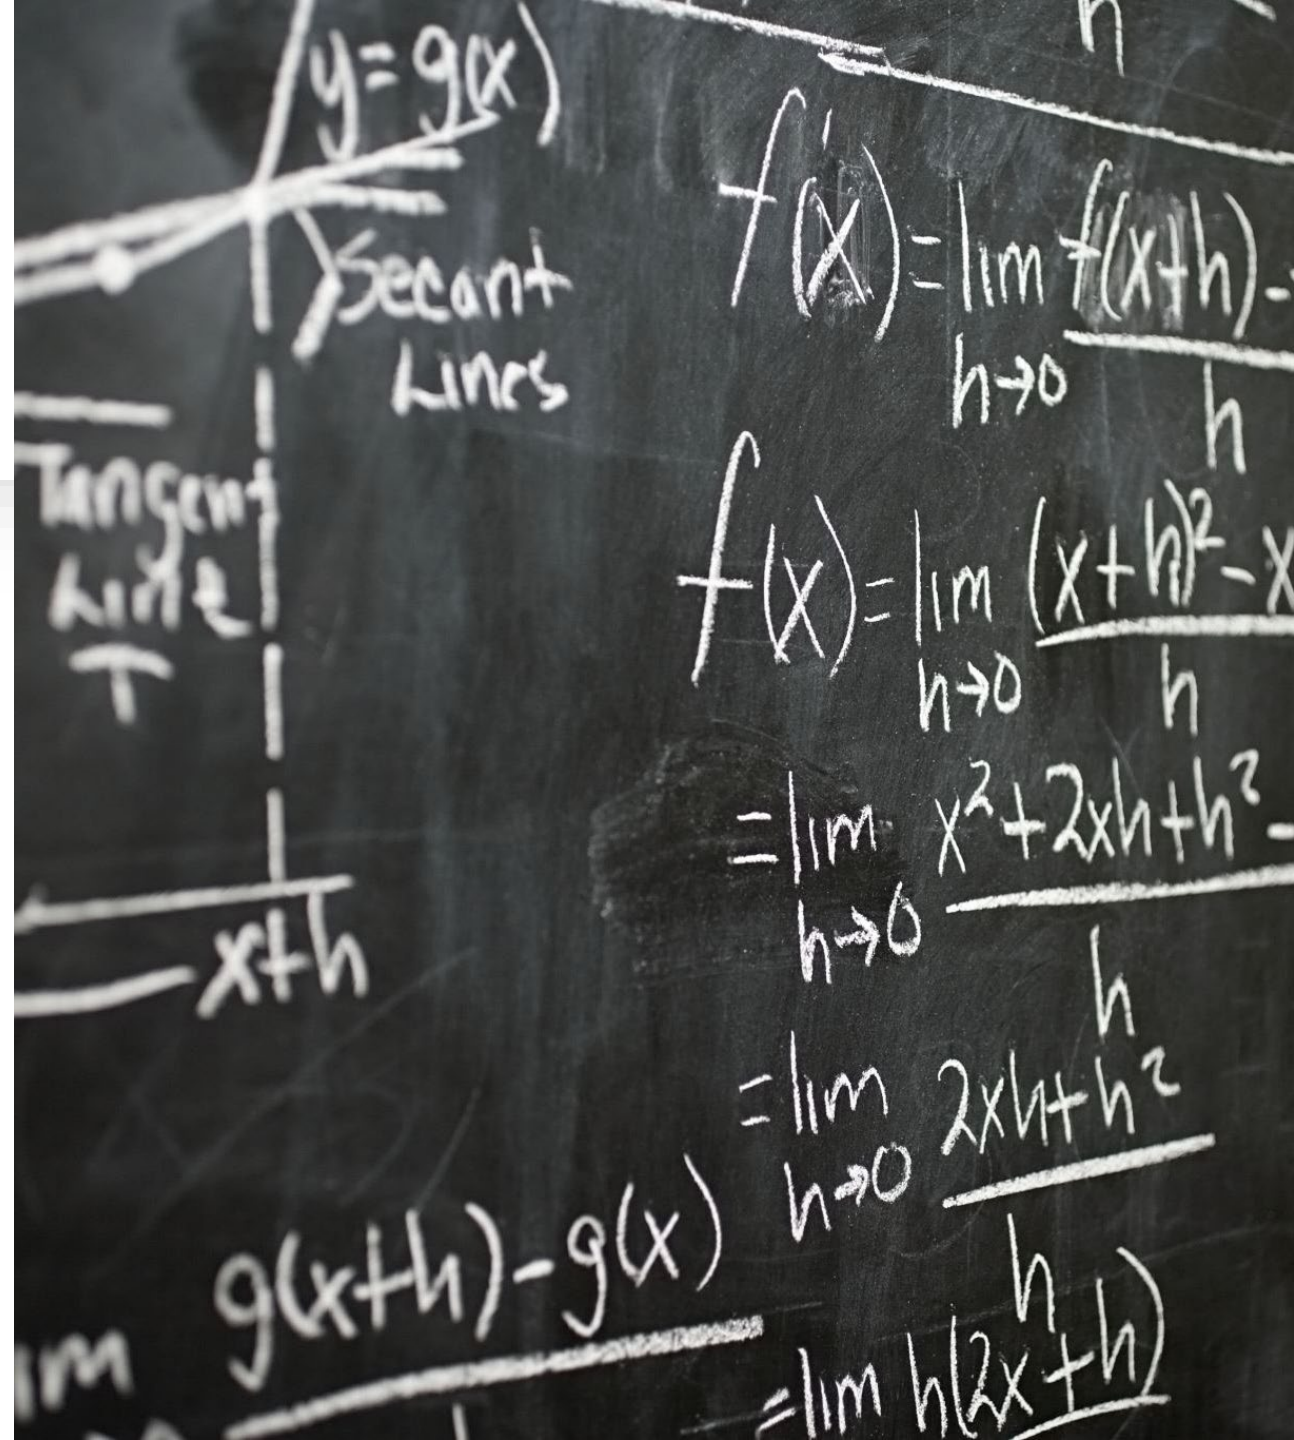 y=g(x)
Secant
Lines
Tangent
Line
T
x+h
g(x+h)-g(x)
h
f'(x)=lim f(x+h)-
h→0 h
f(x)=lim (x+h)²-x
h→0 h
=lim x²+2xh+h²-
h→0 h
=lim 2xh+h²
h→0 h
=lim h(2x+h)